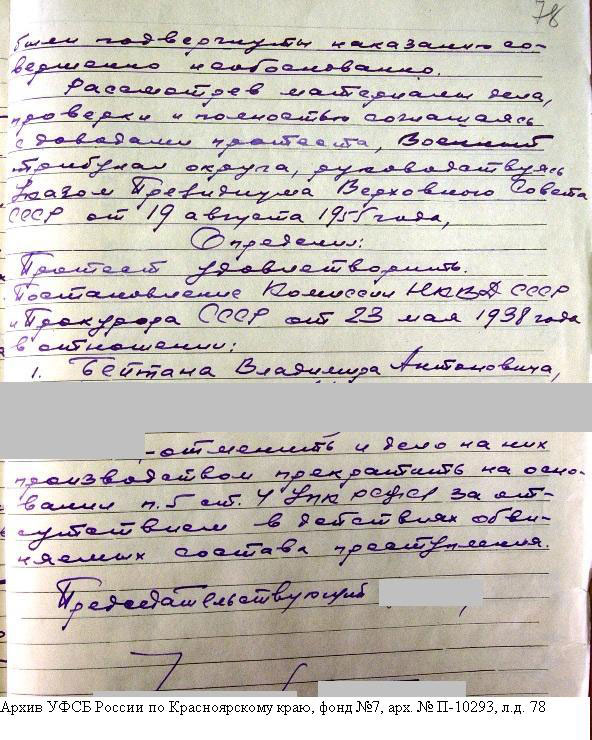 78
были подвергнуты наказанию со-
вершенно необоснованно.
Рассмотрев материалы дела,
проверки и полностью соглашаясь
с доводами протеста, Военный
трибунал округа, руководствуясь
Указом Президиума Верховного Совета
СССР от 19 августа 1955 года,
Определил:
Протест удовлетворить.
Постановление Комиссии НКВД СССР
и Прокурора СССР от 23 мая 1938 года
в отношении:
1. Бейтана Владимира Антоновича,
-отменить и дело на них
производством прекратить на осно-
вании п.5 ст. 4 УПК РСФСР за от-
сутствием в действиях обви-
няемых состава преступления.
Председательствующий
Архив УФСБ России по Красноярскому краю, фонд №7, арх. № П-10293, л.д. 78